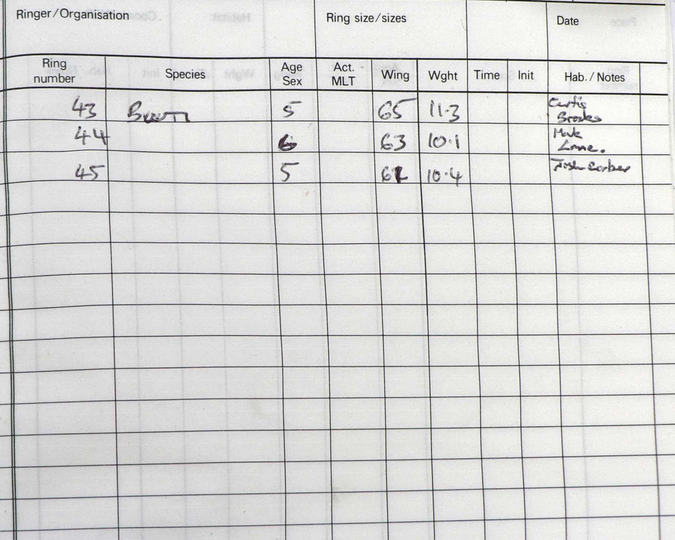 Ringer/Organisation Ring size/sizes Date
Ring number Species Age Sex Act. MLT Wing Wght Time Init Hab./Notes
43 5 65 11.3 Curtis Brooks
44 6 63 10.1 Mark
45 5 10.4 Josh Barber